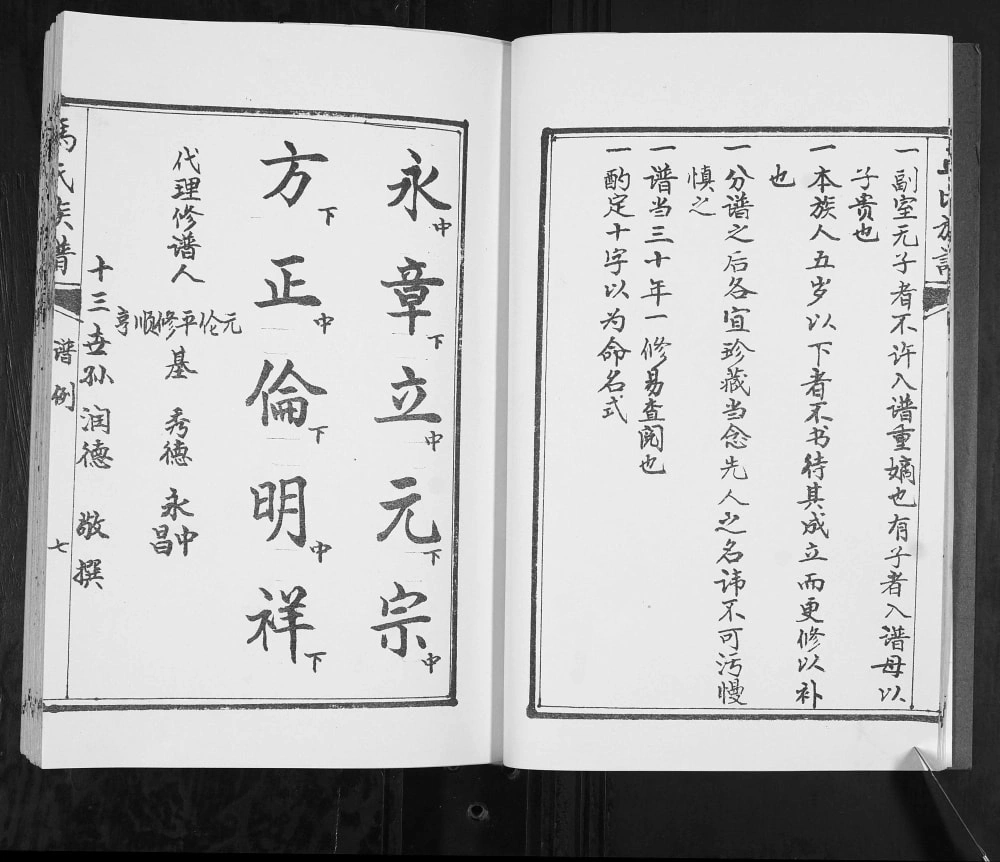 一副室无子者不许入谱重嫡也有子者入谱母以
子贵也
一本族人五岁以下者不书待其成立而更修以补
也
一分谱之后各宜珍藏当念先人之名讳不可污慢
慎之
一谱当三十年一修易查阅也
一酌定十字以为命名式
永中章下立中元下宗中
方下正中倫下明中祥下
代理修谱人
元伦平修顺亨
基 秀德 永中
昌
十三世孙 润德 敬撰
馮氏族譜 谱例 七